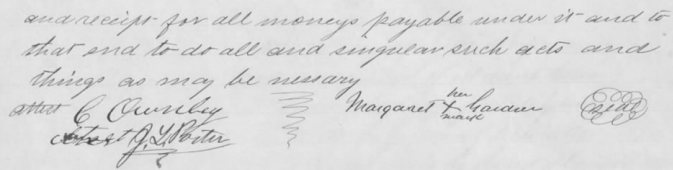 and receipt for all moneys payable under it and to
that end to do all and singular such acts and
things as may be nessary
attest C Ownby
attest J. L. Porter
Margaret her X mark Gardner seal